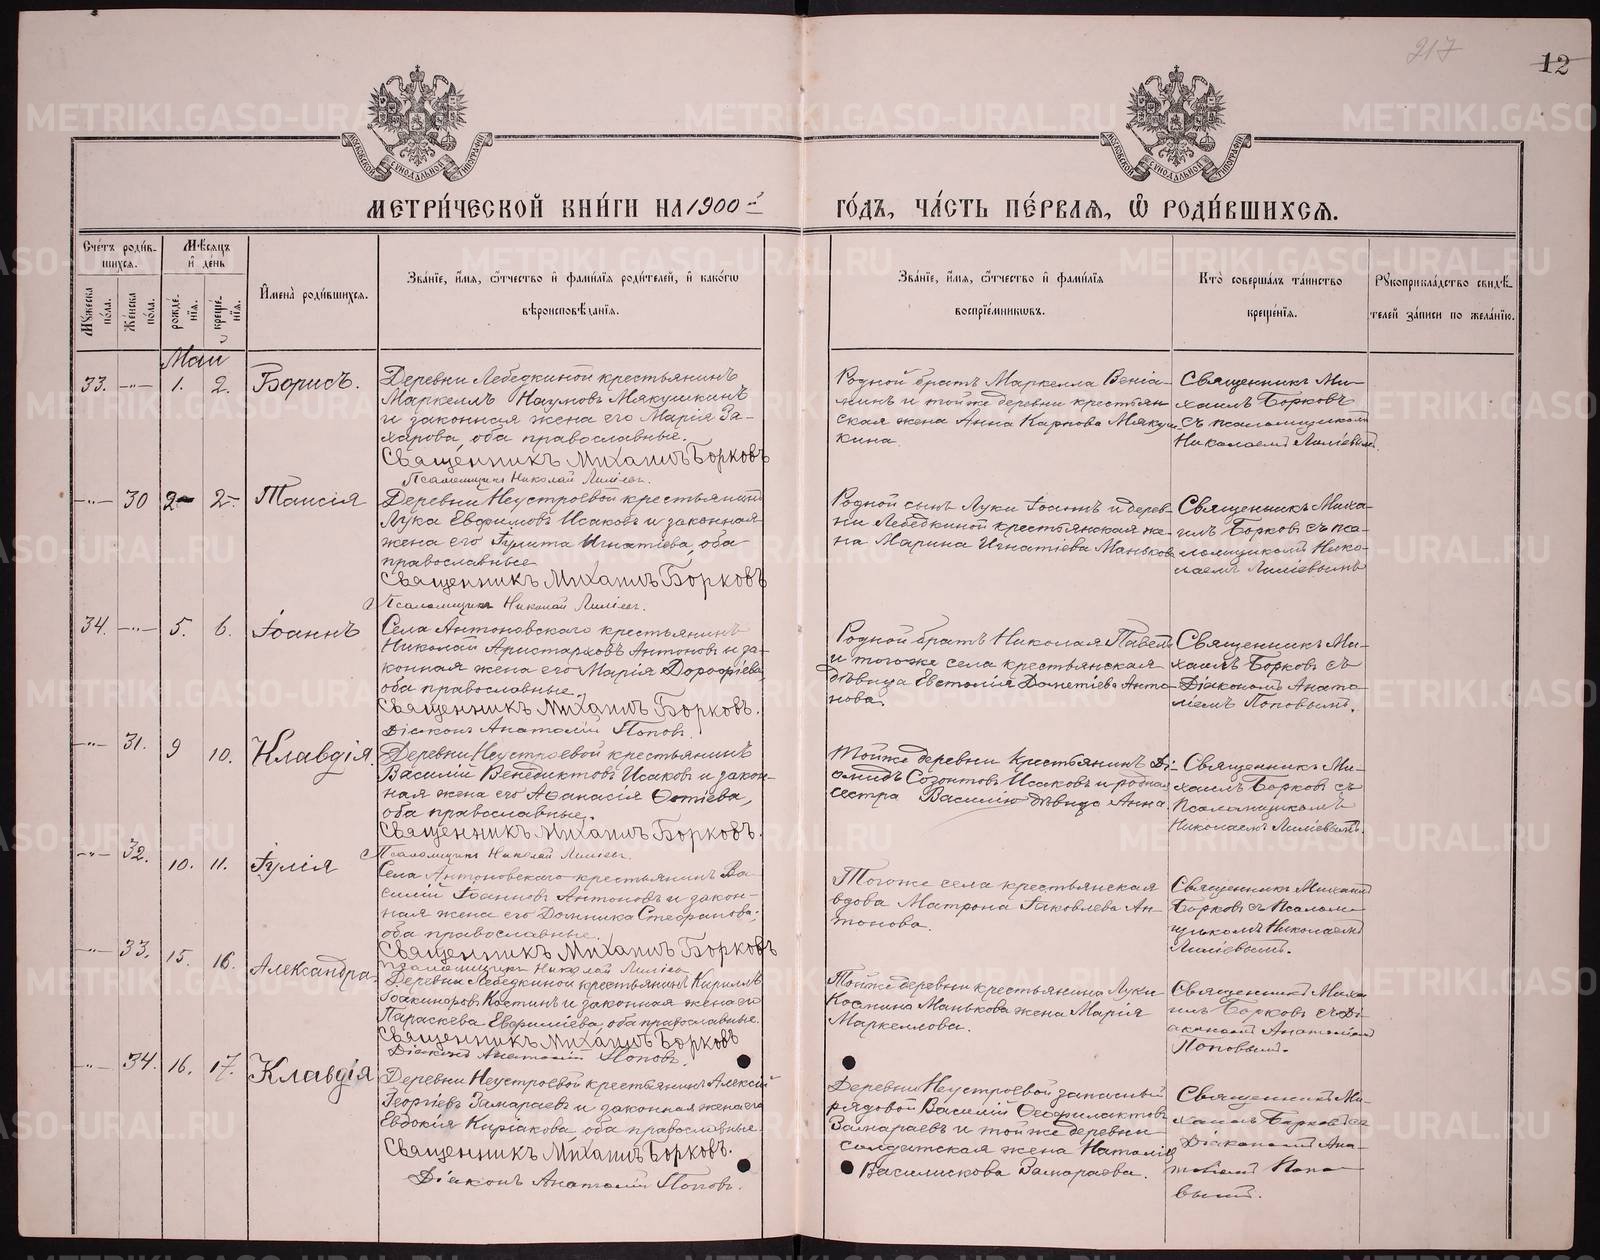 217
12
МОСКОВСКОЙ СѴНОДАЛЬНОЙ ТИПОГРАФІИ
МОСКОВСКОЙ СѴНОДАЛЬНОЙ ТИПОГРАФІИ
МЕТРИ́ЧЕСКОЙ КНИ́ГИ НА 1900 й ГО́ДЪ, ЧА́СТЬ ПЕ́РВАЯ, Ѡ҆ РОДИ́ВШИХСЯ.
Сче́тъ роди́вшихся.
Мꙋжеска по́ла.
Же́нска по́ла.
Мѣ́сяцъ и҆ де́нь
рожде́нїя.
креще́нїя.
И҆мена̀ роди́вшихся.
Зва́нїе, и҆́мя, ѻ҆́тчество и҆ фами́лїя роди́телей, и҆ како́гѡ
вѣроисповѣ́данїя.
Зва́нїе, и҆́мя, ѻ҆́тчество и҆ фами́лїя
воспрїе́мникѡвъ.
Кто̀ соверша́лъ та́инство
креще́нїя.
Рꙋкоприкла́дство свидѣ́телей за́писи по жела́нїю.
Маи
33. -"- 1. 2. Борисъ.
Деревни Лебедкиной крестьянинъ
Маркеллъ Наумовъ Мякушкинъ
и законная жена его Марія За-
харова, оба православные.
Священникъ Михаилъ Борковъ
Псаломщикъ Николай Лиліевъ.
Родной братъ Маркелла Веніа-
минъ и тойже деревни крестьян
ская жена Анна Карпова Мякуш-
кина.
Священникъ Ми-
хаилъ Борковъ
съ псаломщикомъ
Николаемъ Лиліевымъ.
-"- 30 2 2- Таисія
Деревни Неустроевой крестьянинъ
Лука Евфимовъ Исаковъ и законная
жена его Іулита Игнатіева, оба
православные
Священникъ Михаилъ Борковъ
Псаломщикъ Николай Лиліевъ.
Родной сынъ Луки Іоаннъ и дерев-
ни Лебедкиной крестьянская же-
на Марина Игнатіева Манькова
Священникъ Миха-
илъ Борковъ съ пса-
ломщикомъ Нико-
лаемъ Лиліевымъ
34. -"- 5. 6. Іоаннъ
Села Антоновскаго крестьянинъ
Николай Аристарховъ Антоновъ и за-
конная жена его Марія Дорофіева,
оба православные.
Священникъ Михаилъ Борковъ.
Діаконъ Анатолій Поповъ.
Родной братъ Николая Павелъ
и тогоже села крестьянская
дѣвица Евстолія Дометіева Анто-
нова.
Священникъ Ми-
хаилъ Борковъ съ
Діакономъ Анато-
ліемъ Поповымъ.
-"- 31. 9 10. Клавдія.
Деревни Неустроевой крестьянинъ
Василій Венедиктовъ Исаковъ и закон-
ная жена его Аѳанасія Фотіева,
оба православные.
Священникъ Михаилъ Борковъ.
Псаломщикъ Николай Лиліевъ.
Тойже деревни крестьянинъ Ді-
омидъ Созонтовъ Исаковъ и родная
сестра Василію дѣвица Анна.
Священникъ Ми-
хаилъ Борковъ съ
Псаломщикомъ
Николаемъ Лиліевымъ.
-"- 32. 10. 11. Іулія
Села Антоновскаго крестьянинъ Ва-
силій Іоанновъ Антоновъ и закон-
ная жена его Домника Стефанова,
оба православные.
Священникъ Михаилъ Борковъ
Псаломщикъ Николай Лиліевъ
Тогоже села крестьянская
вдова Матрона Іаковлева Ан-
тонова.
Священникъ Михаилъ
Борковъ съ Псалом-
щикомъ Николаемъ
Лиліевымъ.
-"- 33. 15. 16. Александра.
Деревни Лебедкиной крестьянинъ Кириллъ
Іоакимовъ Костинъ и законная жена его
Параскева Евфиміева, оба православные.
Священникъ Михаилъ Борковъ
Діаконъ Анатолій Поповъ.
Тойже деревни крестьянина Луки
Космина Манькова жена Марія
Маркеллова.
Священникъ Миха
илъ Борковъ съ Ді-
акономъ Анатоліемъ
Поповымъ.
-"- 34. 16. 17. Клавдія
Деревни Неустроевой крестьянинъ Алексій
Георгіевъ Замараевъ и законная жена его
Евдокія Киріакова оба православные
Священникъ Михаилъ Борковъ.
Діаконъ Анатолій Поповъ.
Деревни Неустроевой запасный
рядовой Василій Ѳеофилактовъ
Замараевъ и тойже деревни
солдатская жена Наталія
Василискова Замараева.
Священникъ Ми-
хаилъ Борковъ съ
Діакономъ Ана-
толіемъ Попо-
вымъ.
METRIKI.GASO-URAL.RU